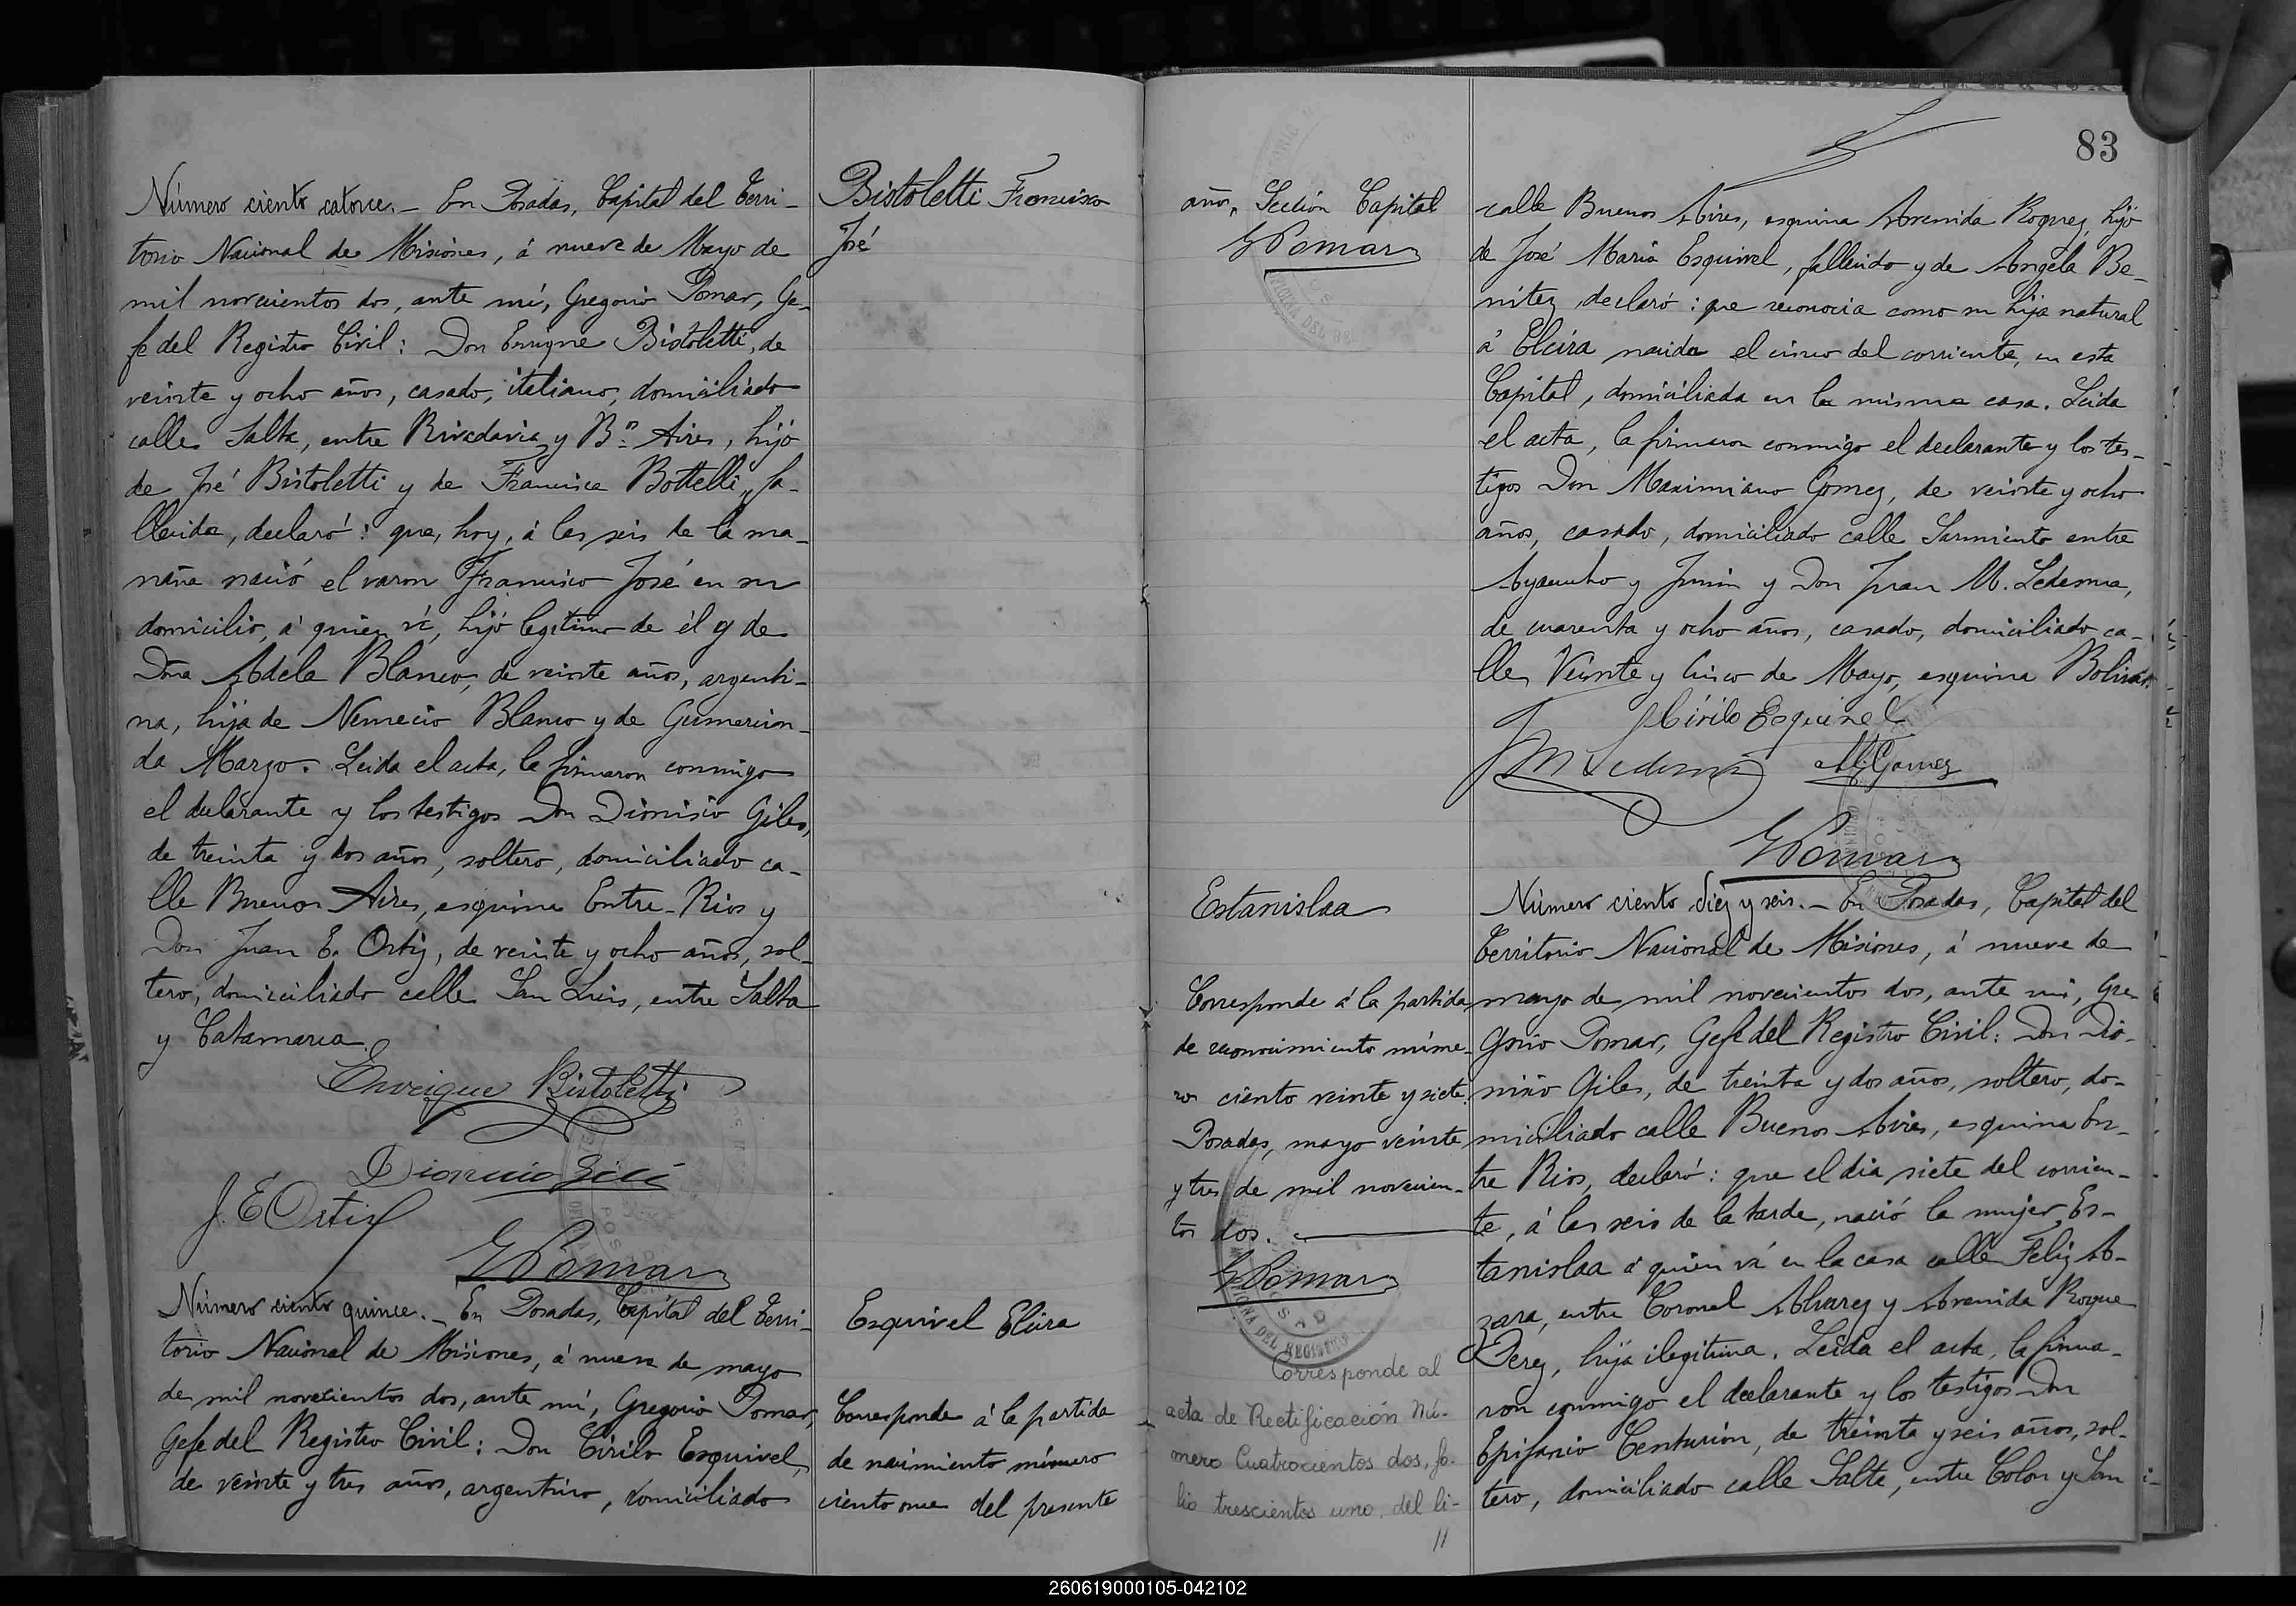 Número ciento catorce. – En Posadas, Capital del Terri-
torio Nacional de Misiones, á nueve de Mayo de
mil novecientos dos, ante mí, Gregorio Pomar, Ge-
fe del Registro Civil: Don Enrique Bistoletti, de
veinte y ocho años, casado, italiano, domiciliado
calle Salta, entre Rivadavia y Bs Aires, hijo
de José Bistoletti y de Francisca Bottelli, fa-
llecida, declaró: que, hoy, á las seis de la ma-
ñana nació el varon Francisco José en su
domicilio, á quien ví, hijo legítimo de él y de
Doña Adela Blanco, de veinte años, argenti-
na, hija de Nemecio Blanco y de Gumercin-
da Marzo. Leida el acta, la firmaron conmigo
el declarante y los testigos Don Dionisio Giles,
de treinta y dos años, soltero, domiciliado ca-
lle Buenos Aires, esquina Entre-Rios y
Don Juan E. Ortiz, de veinte y ocho años, sol-
tero, domiciliado calle San Luis, entre Salta
y Catamarca.
Enrique Bistoletti
Dionicio
J. E Ortiz
G Pomar
Bistoletti Francisco
José
Número ciento quince. – En Posadas, Capital del Terri-
torio Nacional de Misiones, á nueve de mayo
de mil novecientos dos, ante mí, Gregorio Pomar,
Gefe del Registro Civil: Don Cirilo Esquivel,
de veinte y tres años, argentino, domiciliado
Esquivel Elcira
Corresponde á la partida
de nacimiento número
ciento once del presente
año, Sección Capital
G Pomar
83
calle Buenos Aires, esquina Avenida Roque, hijo
de José Maria Esquivel, fallecido y de Angela Be-
nitez declaró: que reconocia como su hija natural
á Elcira nacida el cinco del corriente, en esta
Capital, domiciliada en la misma casa. Leida
el acta, la firmaron conmigo el declarante y los tes-
tigos Don Maximiano Gomez, de veinte y ocho
años, casado, domiciliado calle Sarmiento entre
Ayacucho y Junin y Don Juan M. Ledesma,
de cuarenta y ocho años, casado, domiciliado ca-
lle Veinte y Cinco de Mayo, esquina Bolivar.
Cirilo Esquivel
J M Ledesma M. Gomez
G Pomar
Estanislaa
Corresponde á la partida
de reconocimiento núme-
ro ciento veinte y siete.
Posadas, mayo veinte
y tres de mil novecien-
tos dos.
G Pomar
Corresponde al
acta de Rectificación Nú-
mero Cuatrocientos dos, fo-
lio trescientos uno, del li-
//
Número ciento diez y seis. – En Posadas, Capital del
Territorio Nacional de Misiones, á nueve de
mayo de mil novecientos dos, ante mí, Gre-
gorio Pomar, Gefe del Registro Civil: Don Dio-
nisio Giles, de treinta y dos años, soltero, do-
miciliado calle Buenos Aires, esquina En-
tre Rios, declaró: que el dia siete del corrien-
te, á las seis de la tarde, nació la mujer Es-
tanislaa á quien ví en la casa calle Feliz A-
zara, entre Coronel Alvarez y Avenida Roque
Perez, hija ilegitima. Leida el acta, la firma-
ron conmigo el declarante y los testigos Don
Epifanio Centurión, de treinta y seis años, sol-
tero, domiciliado calle Salta, entre Colon y San
260619000105-042102